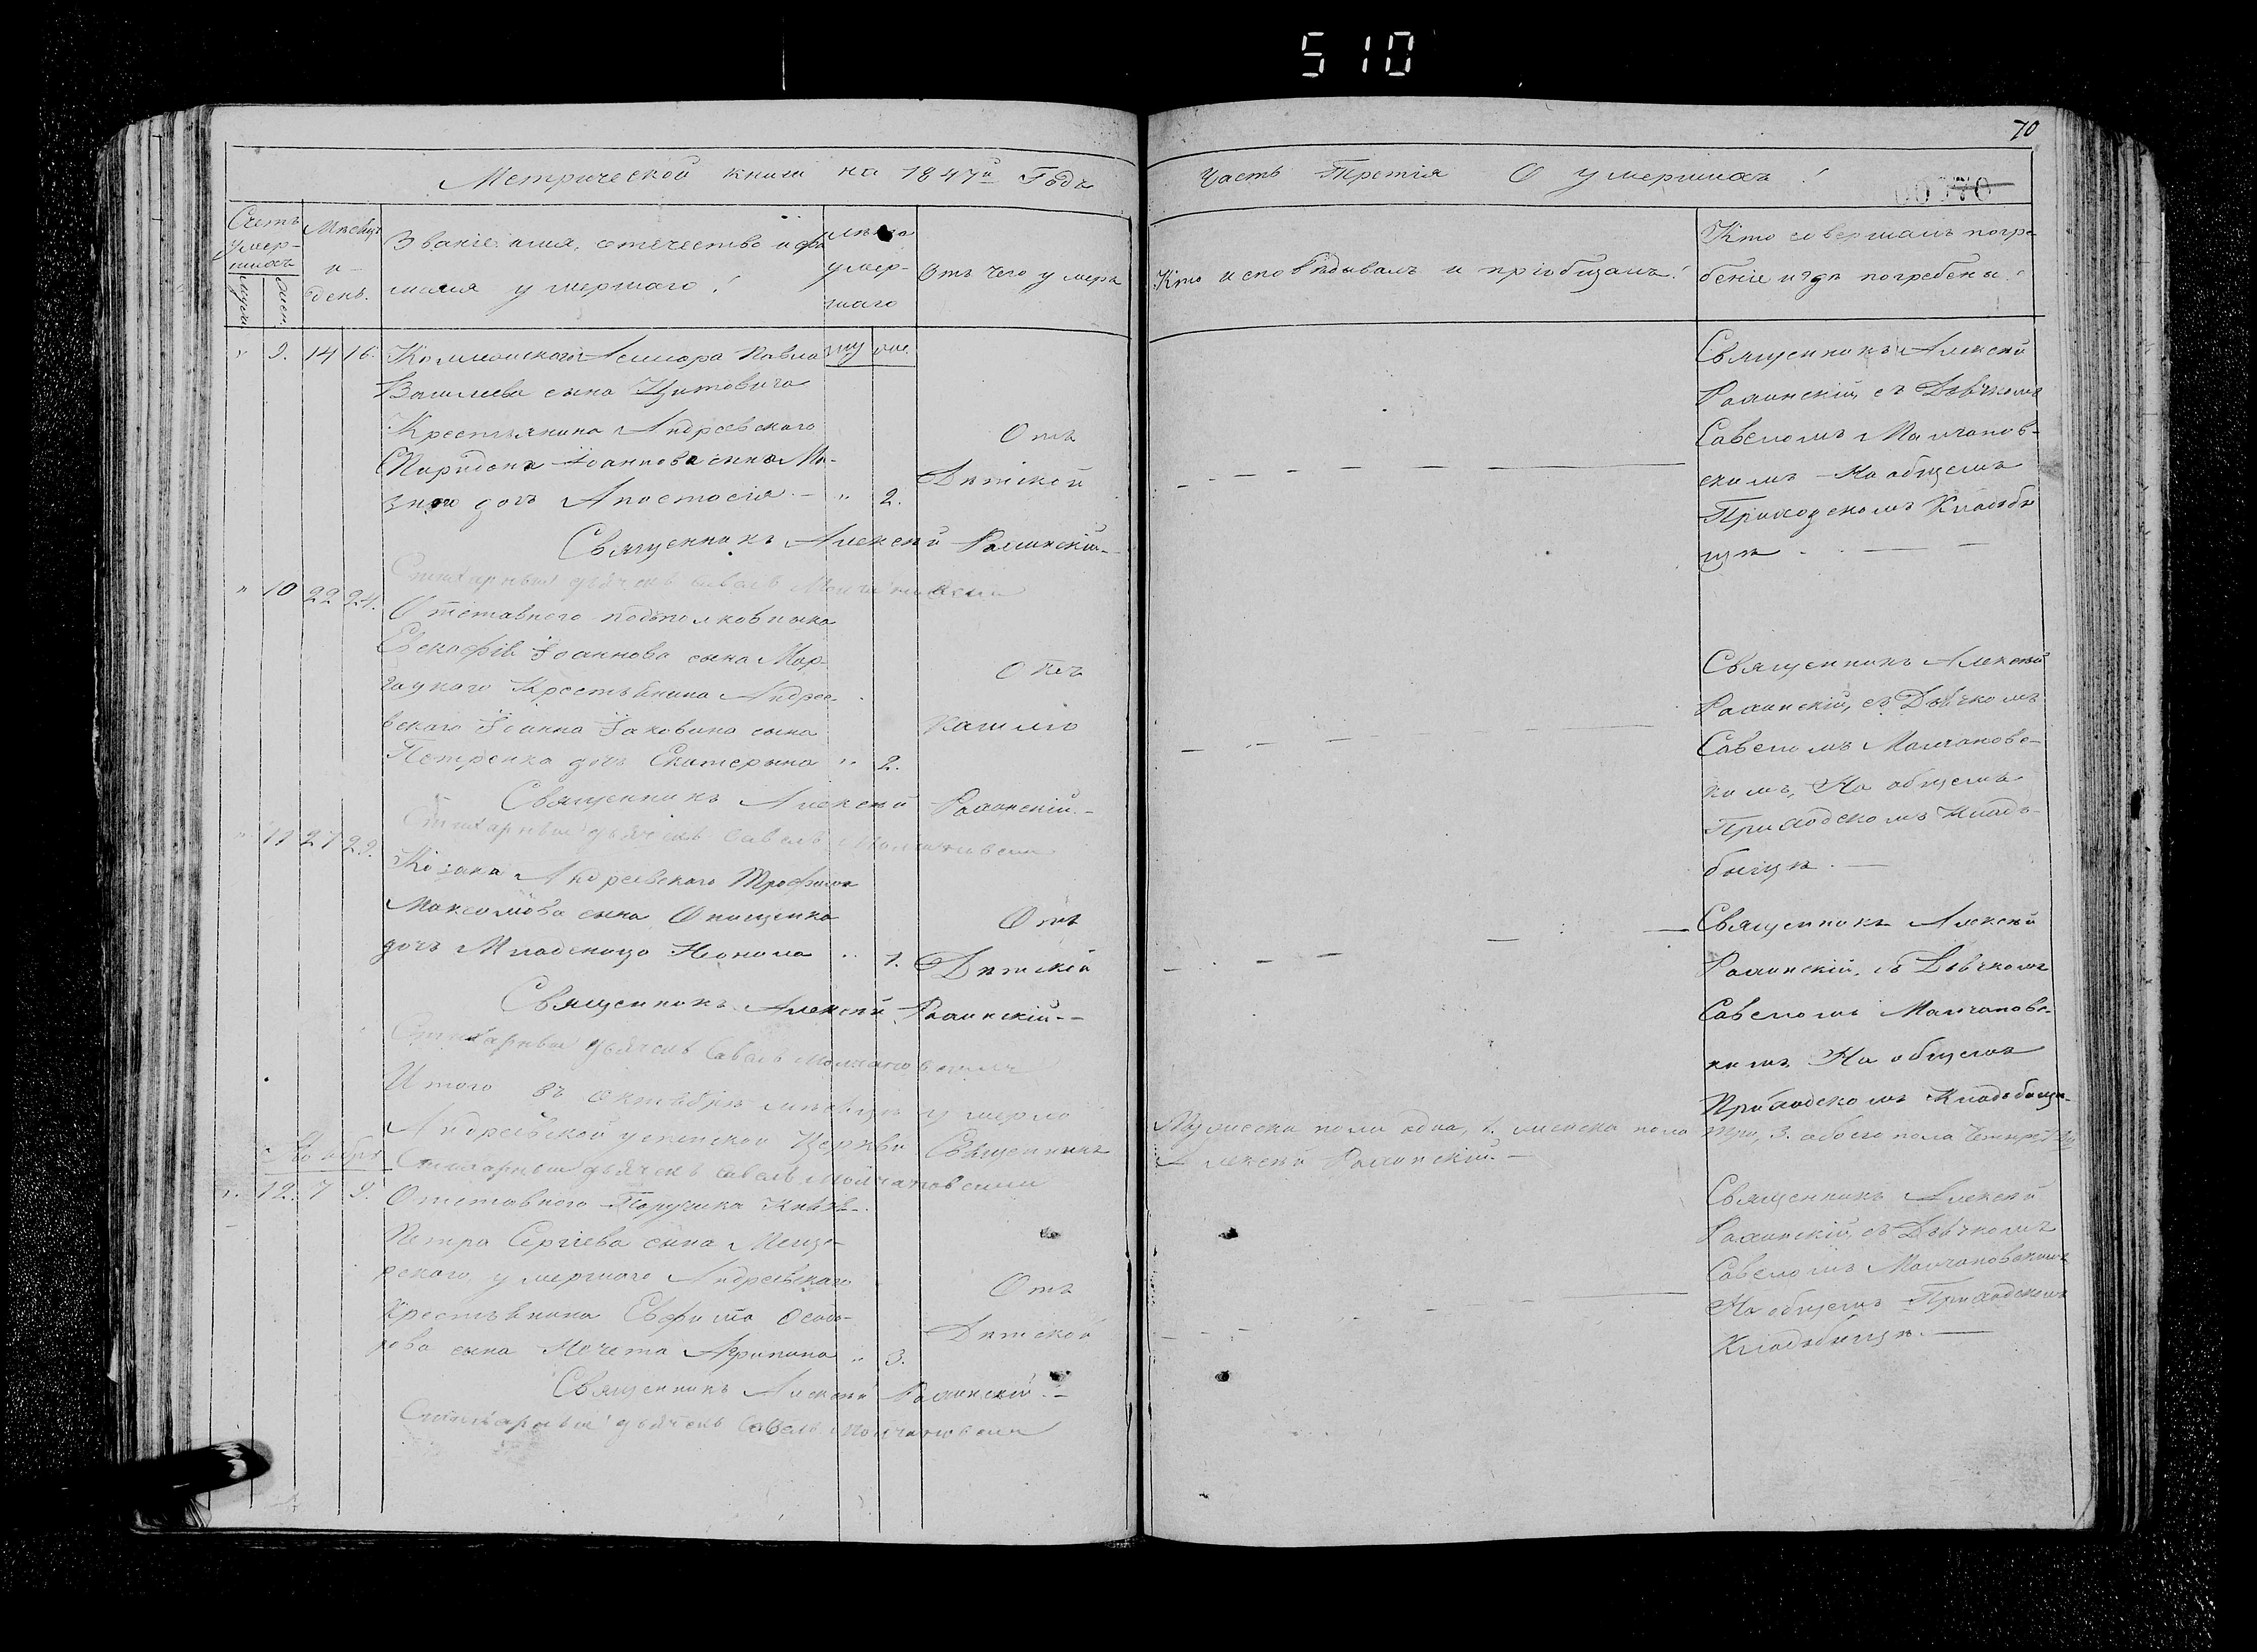 510
70
Метрической книги на 1847й Годъ
Часть Третія О умершихъ!
Счетъ умер-шихъ
муж. жен.
Мѣсяцъ и день.
Званіе имя, отечество и фа
милія умершаго!
лѣта умер-шаго
му же.
Отъ чего умеръ
Кто исповѣдывалъ и пріобщалъ!
Кто совершалъ погре
беніе и гдѣ погребены.
" 9. 14 16. Коллежского Ассесора Павла
Васильева сына Цитовича
Крестьянина Андреевского
Спиридона Іоаннова сына
дочь Анастасія. — " 2.
Отъ
Дѣтской
Священникъ Алексѣй
съ Дьячкомъ
Савеломъ Молчанов-
скимъ На общемъ
Приходскомъ Кладби
щѣ
Священникъ Алексѣй
Стихарный дьячекъ Савелъ Молчановскій
" 10 22 24.
Отставного подполковника
Іоаннова сына
Крестьянина Андрее-
вского Іоанна Іаковина сына
Петренка дочь Екатерина " 2.
Отъ
кашлю
Священникъ Алексѣй
съ Дьячкомъ
Савеломъ Молчановс-
кимъ, На общемъ
Приходскомъ Клад-
бищѣ.
Священникъ Алексѣй
Стихарный дьячекъ Савелъ Молчановскій
" 11 27 29.
Козака Андреевского Трофима
Максимова сына Онищенка
дочь Младеница " 1.
Отъ
Дѣтской
Священникъ Алексѣй
съ Дьячкомъ
Савеломъ Молчановс-
кимъ На общемъ
Приходскомъ Кладбищѣ
Священникъ Алексѣй
Стихарный дьячекъ Савелъ Молчановскій
Итого въ октябрѣ мѣсяцѣ умерло
Мужеска пола одна, 1. женска пола три, 3. обоего пола четыре
Андреевской успенской Церкви Священникъ
Алексѣй
Стихарный дьячекъ Савелъ Молчановскій
Ноября
" 12. 7 9.
Отставного Поручика Князь
Петра Сергіева сына Меще-
рского, умершого Андреевского
Крестьянина Евфима Ѳеодо-
рова сына " 3.
Отъ
Дѣтской
Священникъ Алексѣй
съ Дьячкомъ
Савеломъ Молчановскимъ
На общемъ Приходскомъ
Кладбищѣ.
Священникъ Алексѣй
Стихарный дьячекъ Савелъ Молчановскій